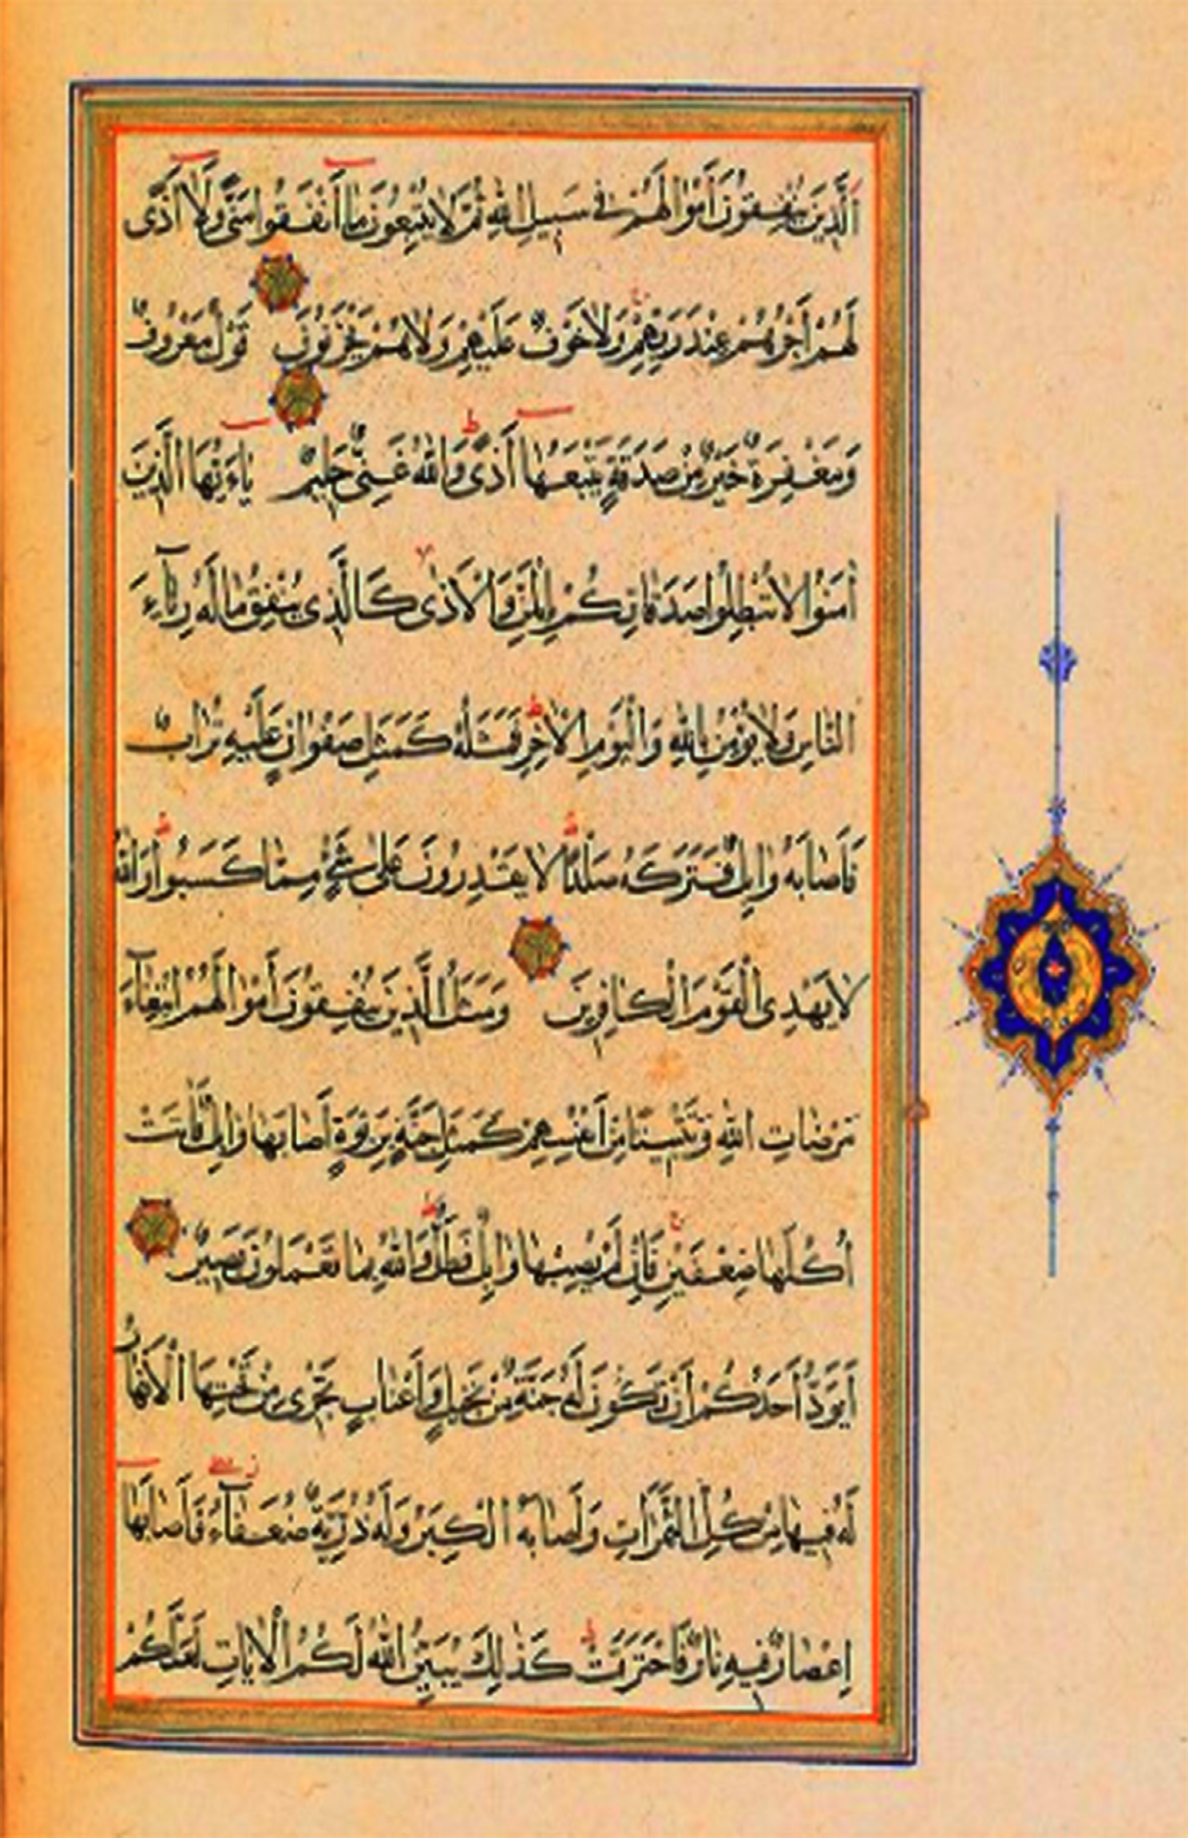 اَلَّذِينَ يُنْفِقُونَ أَمْوَالَهُمْ فِي سَبِيلِ اللّٰهِ ثُمَّ لَا يُتْبِعُونَ مَا أَنْفَقُوا مَنًّا وَلَا أَذًى
لَهُمْ أَجْرُهُمْ عِنْدَ رَبِّهِمْ وَلَا خَوْفٌ عَلَيْهِمْ وَلَا هُمْ يَحْزَنُونَ قَوْلٌ مَعْرُوفٌ
وَمَغْفِرَةٌ خَيْرٌ مِنْ صَدَقَةٍ يَتْبَعُهَا أَذًى وَاللّٰهُ غَنِيٌّ حَلِيمٌ يَاءَيُّهَا الَّذِينَ
اٰمَنُوا لَا تُبْطِلُوا صَدَقَاتِكُمْ بِالْمَنِّ وَالْأَذٰى كَالَّذِي يُنْفِقُ مَالَهُ رِئَاءَ
النَّاسِ وَلَا يُؤْمِنُ بِاللّٰهِ وَالْيَوْمِ الْاٰخِرِ فَمَثَلُهُ كَمَثَلِ صَفْوَانٍ عَلَيْهِ تُرَابٌ
فَأَصَابَهُ وَابِلٌ فَتَرَكَهُ صَلْدًا لَا يَقْدِرُونَ عَلٰى شَيْءٍ مِمَّا كَسَبُوا وَاللّٰهُ
لَا يَهْدِي الْقَوْمَ الْكَافِرِينَ وَمَثَلُ الَّذِينَ يُنْفِقُونَ أَمْوَالَهُمُ ابْتِغَاءَ
مَرْضَاتِ اللّٰهِ وَتَثْبِيتًا مِنْ أَنْفُسِهِمْ كَمَثَلِ جَنَّةٍ بِرَبْوَةٍ أَصَابَهَا وَابِلٌ فَاٰتَتْ
أُكُلَهَا ضِعْفَيْنِ فَإِنْ لَمْ يُصِبْهَا وَابِلٌ فَطَلٌّ وَاللّٰهُ بِمَا تَعْمَلُونَ بَصِيرٌ
أَيَوَدُّ أَحَدُكُمْ أَنْ تَكُونَ لَهُ جَنَّةٌ مِنْ نَخِيلٍ وَأَعْنَابٍ تَجْرِي مِنْ تَحْتِهَا الْأَنْهَارُ
لَهُ فِيهَا مِنْ كُلِّ الثَّمَرَاتِ وَأَصَابَهُ الْكِبَرُ وَلَهُ ذُرِّيَّةٌ ضُعَفَاءُ فَأَصَابَهَا
إِعْصَارٌ فِيهِ نَارٌ فَاحْتَرَقَتْ كَذٰلِكَ يُبَيِّنُ اللّٰهُ لَكُمُ الْاٰيَاتِ لَعَلَّكُمْ